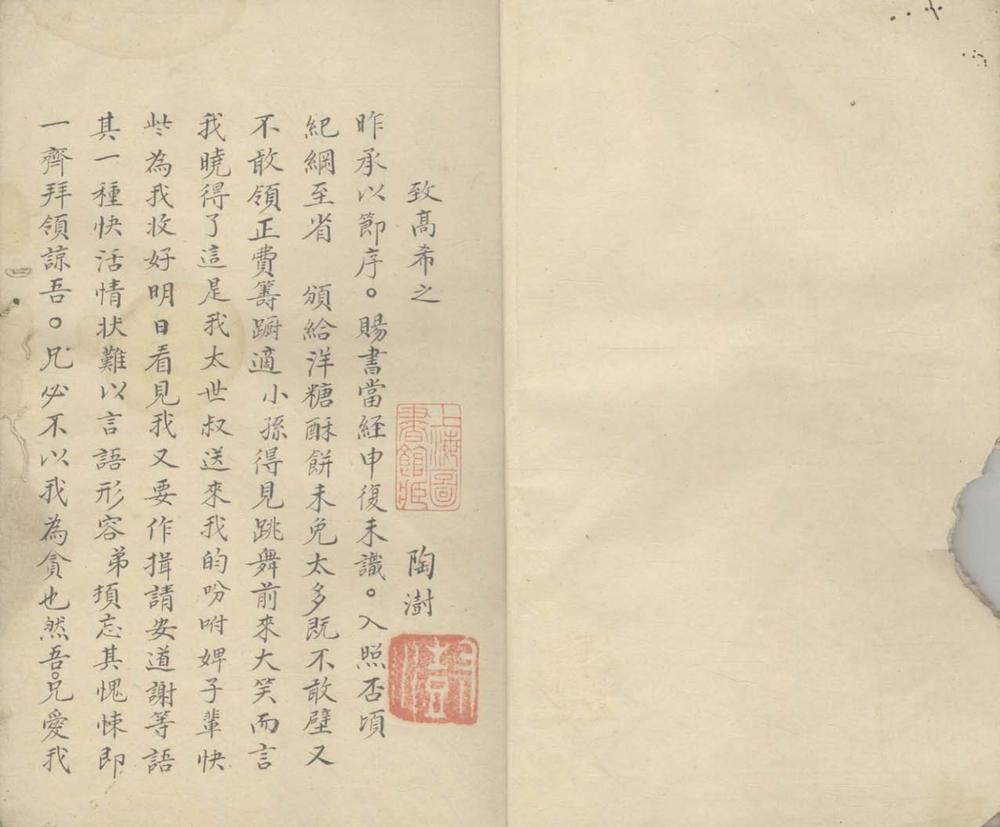 致高希之
陶澍
上海圖書館藏
昨承以節序。賜書當経申復未識。入照否頃
紀綱至省　頒給洋糖酥餅未免太多既不敢璧又
不敢領正費籌躕適小孫得見跳舞前來大笑而言
我曉得了這是我太世叔送來我的吩咐婢子輩快
些為我收好明日看見我又要作揖請安道謝等語
其一種快活情状難以言語形容弟頓忘其愧悚即
一齊拜領諒吾。兄必不以我為貪也然吾。兄愛我